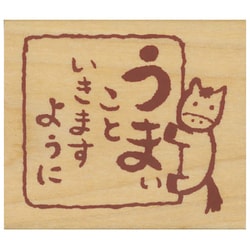 うまぃ
こと
いきます
ように